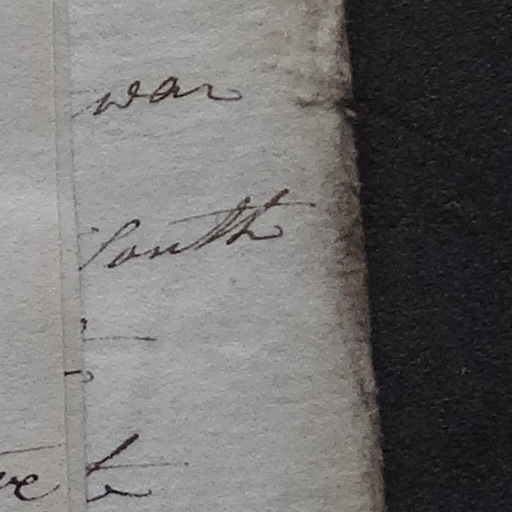 war
South
to